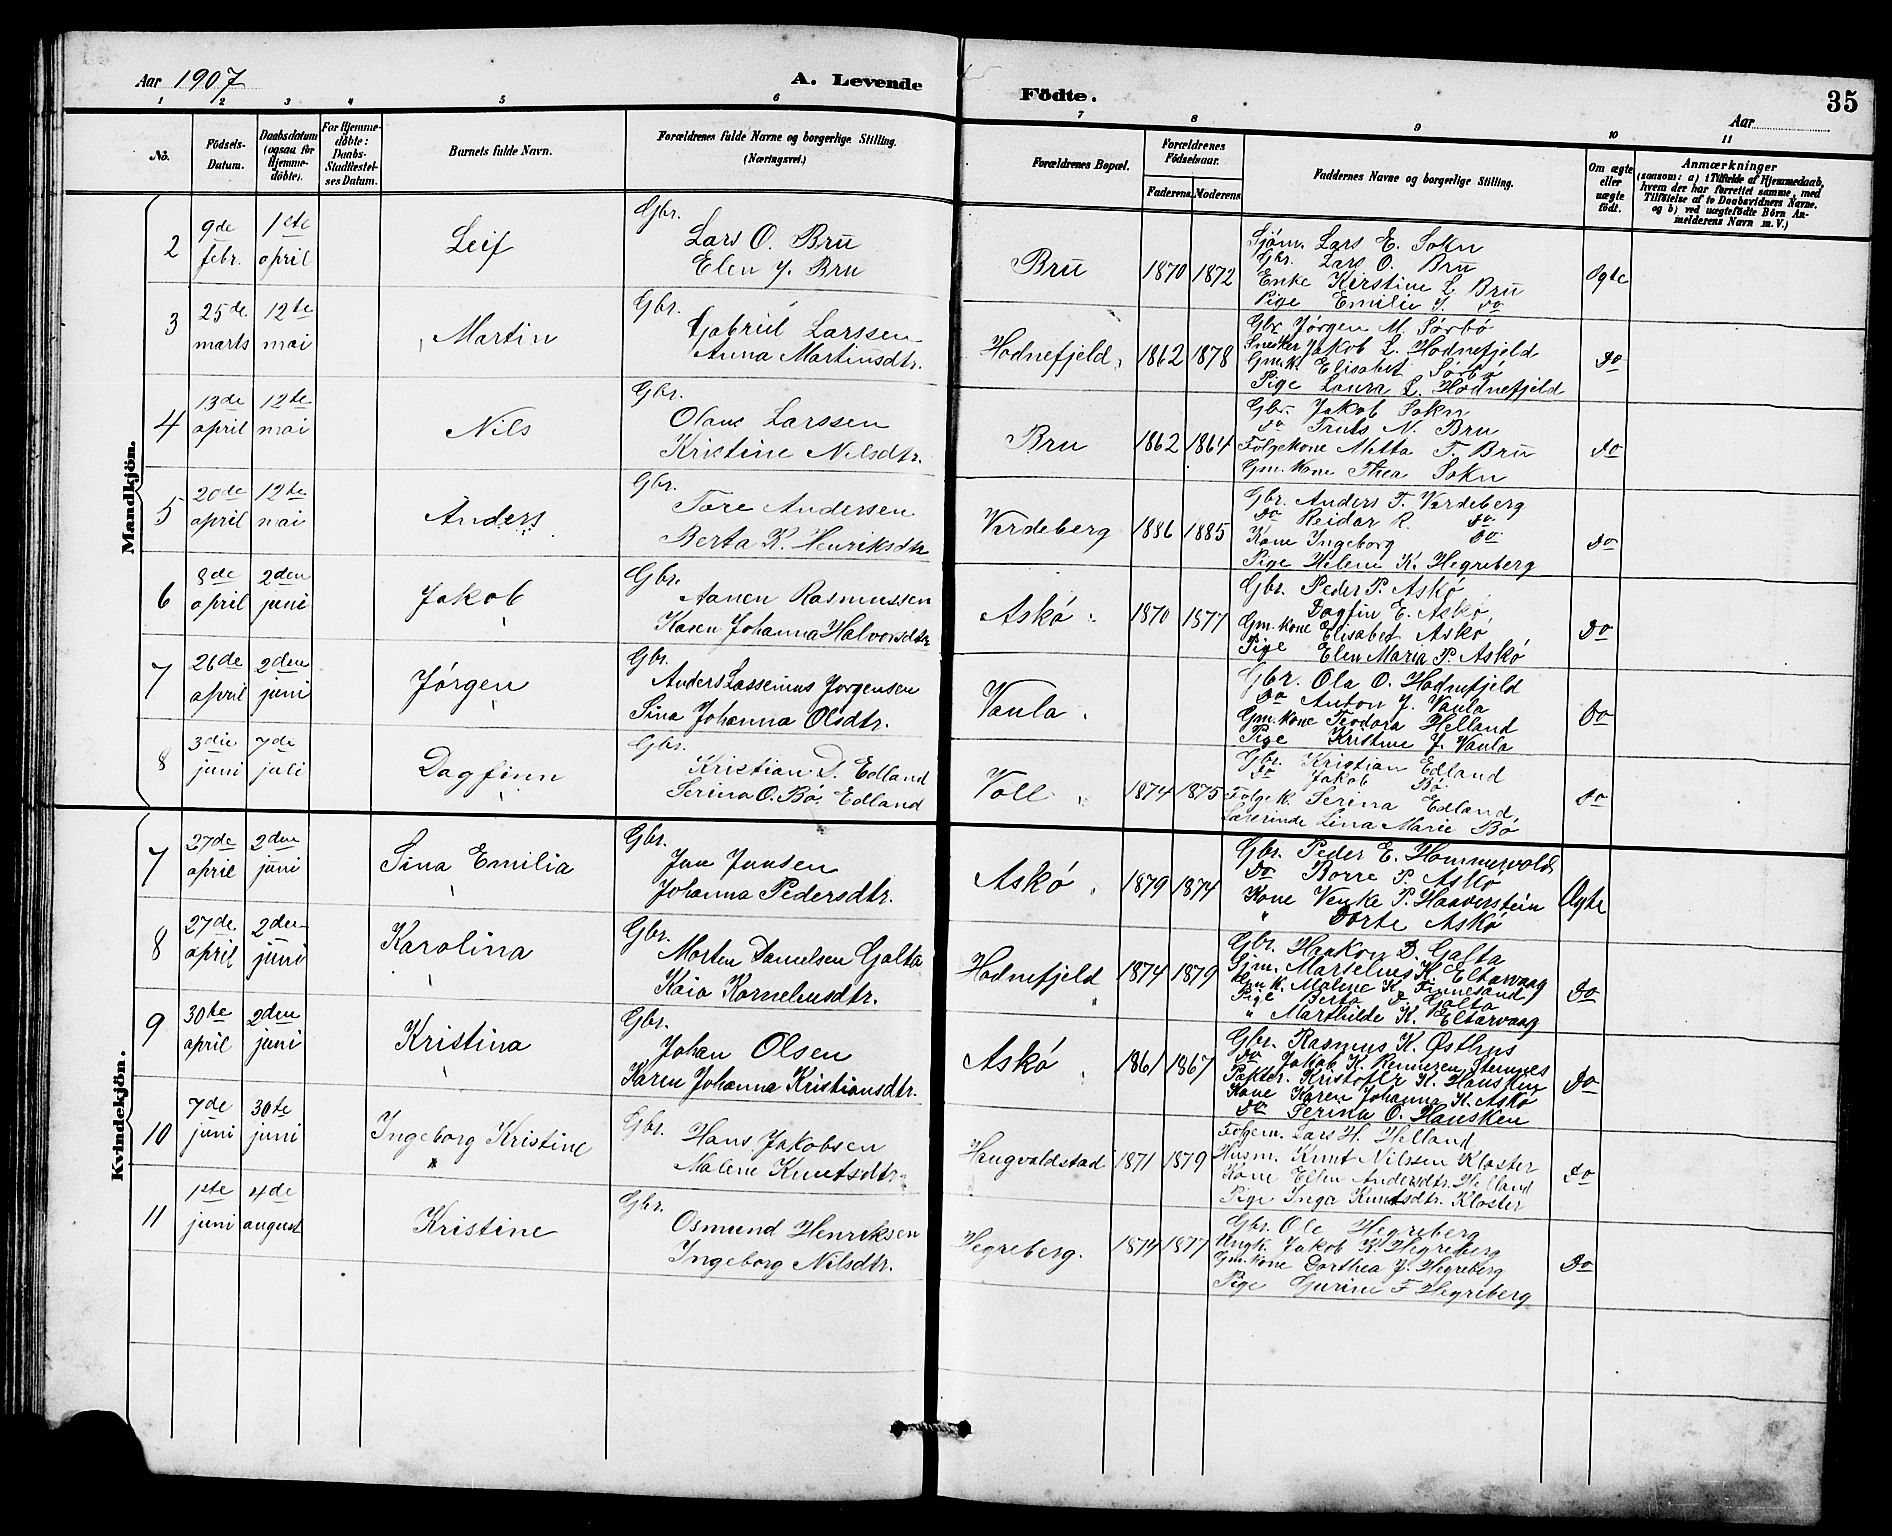 Aar 1907
A. Levende
Födte.
Aar
35
1 2 3 4 5 6 7 8 9 10 11
No.
Födsels-Datum.
Daabsdatum (ogsaa för Hjemme-döbte).
For Hjemme-döbte: Daabs-Stadfestel-ses Datum.
Barnets fulde Navn.
Forældrenes fulde Navne og borgerlige Stilling.
(Næringsvei.)
Forældrenes Bopæl.
Forældrenes Födselsaar.
Faderens. Moderens.
Faddernes Navne og borgerlige Stilling.
Om ægte eller uægte födt.
Anmærkninger
(saasom: a) i Tilfælde af Hjemmedaab,
hvem der har forrettet samme, med
Tilföielse af to Daabsvidners Navne.
og b) ved uægtefödte Börn An-
melderens Navn m. V.)
Mandkjön.
2 9de febr. 1ste april Leif
Gbr.
Lars O. Bru
Elen J. Bru
Bru 1870 1872
Sjøm. Lars E. Sokn
Gbr. Lars O. Bru
Enke Kirstine L Bru
Pige Emilie J. do
Ægte
3 25de marts 12te mai Martin
Gbr.
Gabriel Larssen
Anna Martinsdtr.
Hodnefjeld 1862 1878
Gbr Jørgen M. Sørbø
Snekker Jakob L. Hodnefjeld
Gmk. Elisabet Sørbø
Pige Laura L. Hodnefjeld
do
4 13de april 12te mai Nils
Gbr.
Olaus Larssen
Kristine Nilsdtr.
Bru 1862 1864
Gbr. Jakob Sokn
do Truls N. Bru
Følgekone Metta T. Bru
Gm. Kone Thea Sokn
do
5 20de april 12te mai Anders
Gbr.
Tore Andersen
Berta K. Henriksdtr
Verdeberg 1886 1885
Gbr. Anders T. Verdeberg
do Reidar R. do
Kone Ingeborg do
Pige Helene K. Hegreberg
do
6 8de april 2den juni Jakob
Gbr.
Aanen Rasmussen
Karen Johanna Halvorsdtr
Askø 1870 1877
Gbr. Peder P. Askø
Dagfin E. Askø
Gm. Kone Elisabet Askø
Pige Elen Maria P. Askø
do
7 26de april 2den juni Jørgen
Gbr.
Anders Lassenius Jørgensen
Sina Johanna Olsdtr.
Vaula
Gbr. Ola O. Hodnefjeld
do Anton J. Vaula
Gm. Kone Teodora Helland
Pige Kristine J. Vaula
do
8 3die juni 7de juli Dagfinn
Gbr.
Kristian D. Edland
Serina O. Bø Edland
Voll 1874 1875
Gbr. Kristian Edland
do Jakob Bø
Følgek. Serina Edland
Lærerinde Lina Marie Bø
do
Kvindekjön.
7 27de april 2den juni Sina Emilia
Gbr.
Jan Jansen
Johanna Pedersdtr.
Askø 1879 1874
Gbr. Peder E. Hommersvold
do Børre P. Askø
Kone Venke P. Haaverstein
" Dorte Askø
Ægte
8 27de april 2den juni Karolina
Gbr.
Morten Danielsen Galta
Kaia Korneliusdtr.
Hodnefjeld 1874 1879
Gbr. Haakon D. Galta
Gjm. Marselius K. Eltarvaag
Gmk. Malene K. Finnesand
Pige Berta D. Galta
" Marthilde K. Eltarvaag
do
9 30te april 2den juni Kristina
Gbr.
Johan Olsen
Karen Johanna Kristiansdtr.
Askø 1861 1867
Gbr. Rasmus K. Østhus
do Jakob K. Renneren Stemnes
Pakter. Kristofer K. Hausken
Kone Karen Johanna K. Askø
do Serina O. Hausken
do
10 7de juni 30te juni Ingeborg Kristine
Gbr.
Hans Jakobsen
Malene Knutsdtr.
Haugvaldstad 1871 1879
Følgem. Lars H. Helland
Husm. Knut Nilssen Kloster
Kone Ellen Andersdtr. Helland
Pige Inga Knutsdtr. Kloster
do
11 1ste juni 4de august Kristine
Gbr.
Osmund Henriksen
Ingeborg Nilsdtr.
Hegreberg. 1874 1877
Gbr. Ole Hegreberg
Ungk. Jakob K. Hegreberg
Gm. Kone Dorthea J. Hegreberg
Pige Gurine F Hegreberg
do